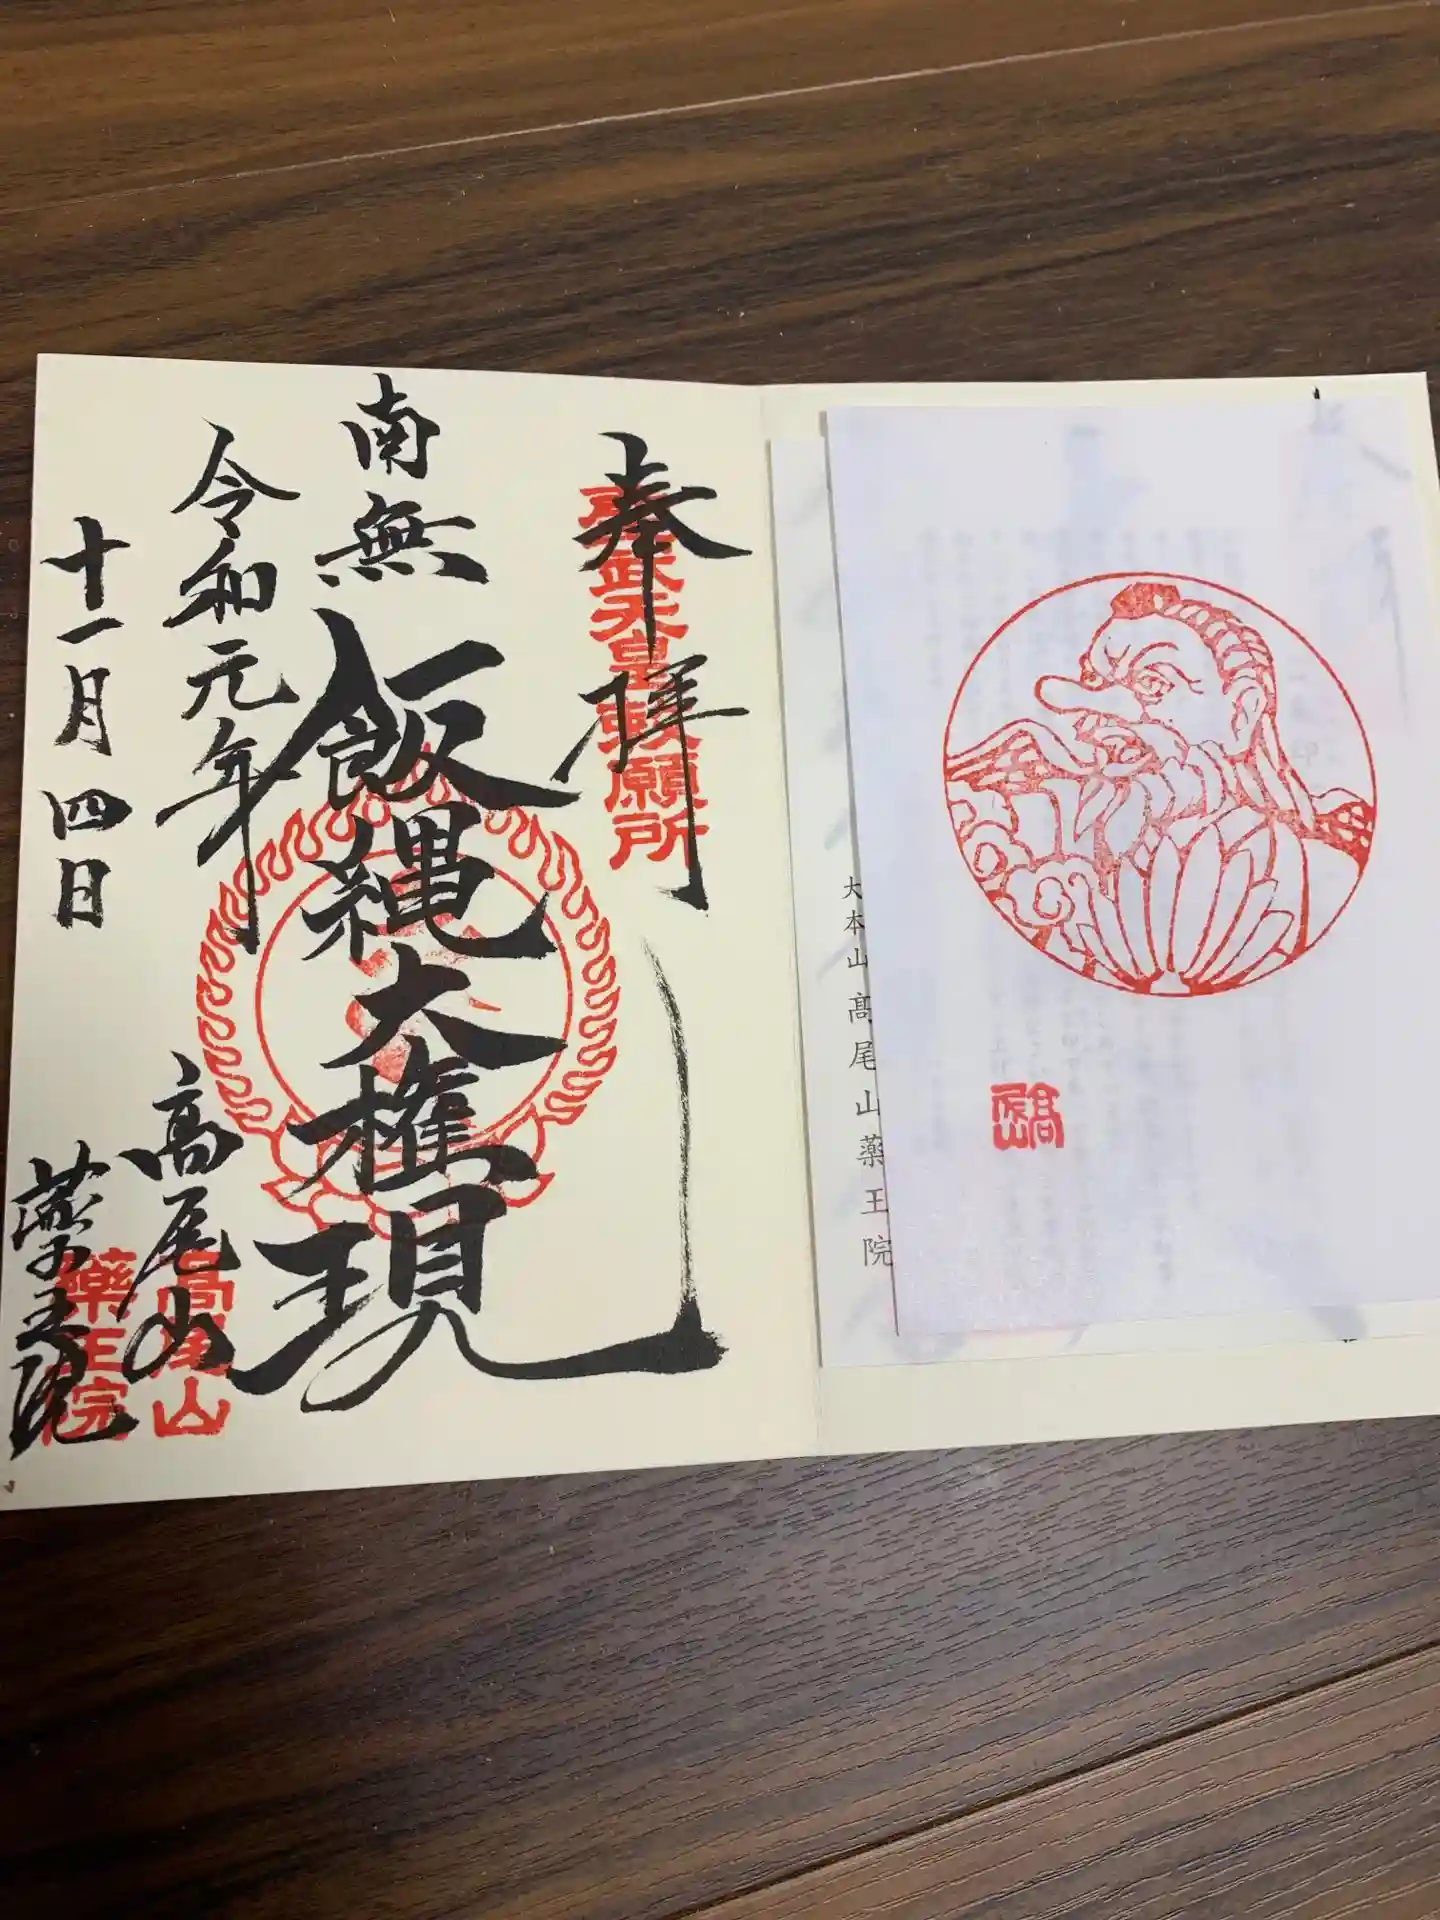 大本山高尾山薬王院
高尾山
奉拝
聖武天皇勅願所
南無飯縄大権現
令和元年
十一月四日
高尾山
薬王院
高尾山
薬王院